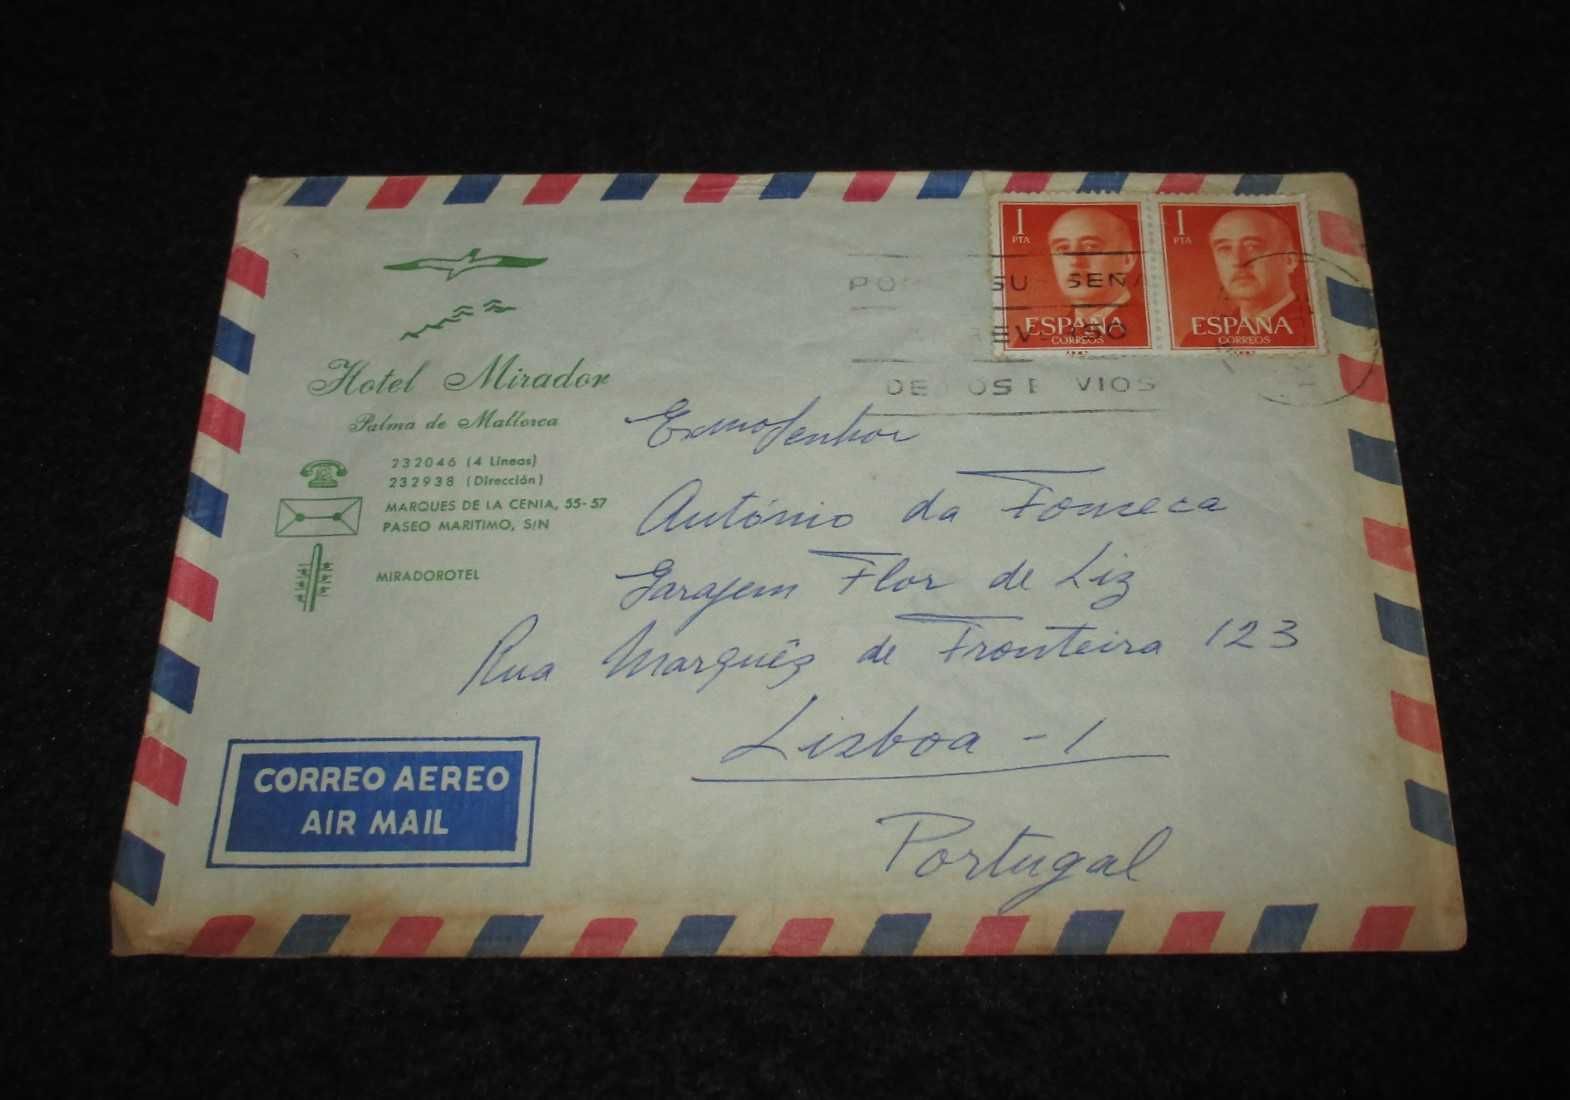 1
PTA
ESPAÑA
CORREOS
1
PTA
ESPAÑA
CORREOS
SU SEÑA
DE OS E VIOS
Hotel Mirador
Palma de Mallorca
232046 (4 Líneas)
232938 (Dirección)
MARQUES DE LA CENIA, 55-57
PASEO MARITIMO, S/N
MIRADOROTEL
Exmo Senhor
António da Fonseca
Garagem Flor de Liz
Rua Marquêz de Fronteira 123
Lisboa - 1
Portugal
CORREO AEREO
AIR MAIL